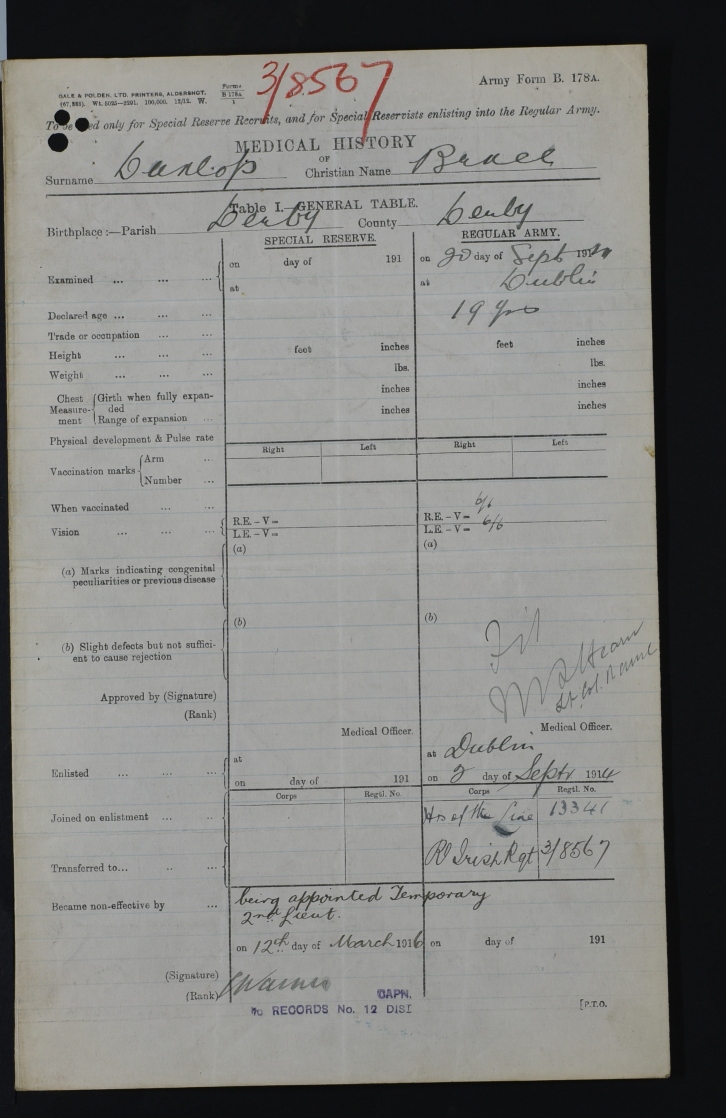 GALE & POLDEN, LTD. PRINTERS, ALDERSHOT.
(67,383). Wt. 5025—2291. 100,000. 12/12. W.
Forms
B 178A
1
3/8567
Army Form B. 178A.
To be used only for Special Reserve Recruits, and for Special Reservists enlisting into the Regular Army.
MEDICAL HISTORY
OF
Surname Dunlop Christian Name Bruce
Table I.—GENERAL TABLE.
Birthplace :—Parish Derby County Derby
SPECIAL RESERVE. REGULAR ARMY.
Examined ... ... ... on day of 191 on 20 day of Sept 1914
at at Dublin
Declared age ... ... ... 19 yrs
Trade or occupation ... ...
Height ... ... ... feet inches feet inches
Weight ... ... ... lbs. lbs.
Chest Measurement Girth when fully expanded inches inches
Range of expansion ... inches inches
Physical development & Pulse rate
Right Left Right Left
Vaccination marks Arm ...
Number ...
When vaccinated ... ...
Vision ... ... ... R.E. – V = R.E. – V = 6/6
L.E. – V = L.E. – V = 6/6
(a) Marks indicating congenital peculiarities or previous disease (a) (a)
(b) Slight defects but not sufficient to cause rejection (b) (b)
Fit
Approved by (Signature)
(Rank) Lt. Col.
Medical Officer. Medical Officer.
Enlisted ... ... ... at at Dublin
on day of 191 on 2 day of Septr 1914
Corps Regtl. No. Corps Regtl. No.
Joined on enlistment ... ... Hrs of the Line 13341
Transferred to... .. ... Rl Irish Rgt 3/8567
Became non-effective by ... being appointed Temporary
2nd Lieut.
on 12th day of March 1916 on day of 191
(Signature)
(Rank) CAPN.
RECORDS No. 12 DIST
[P.T.O.